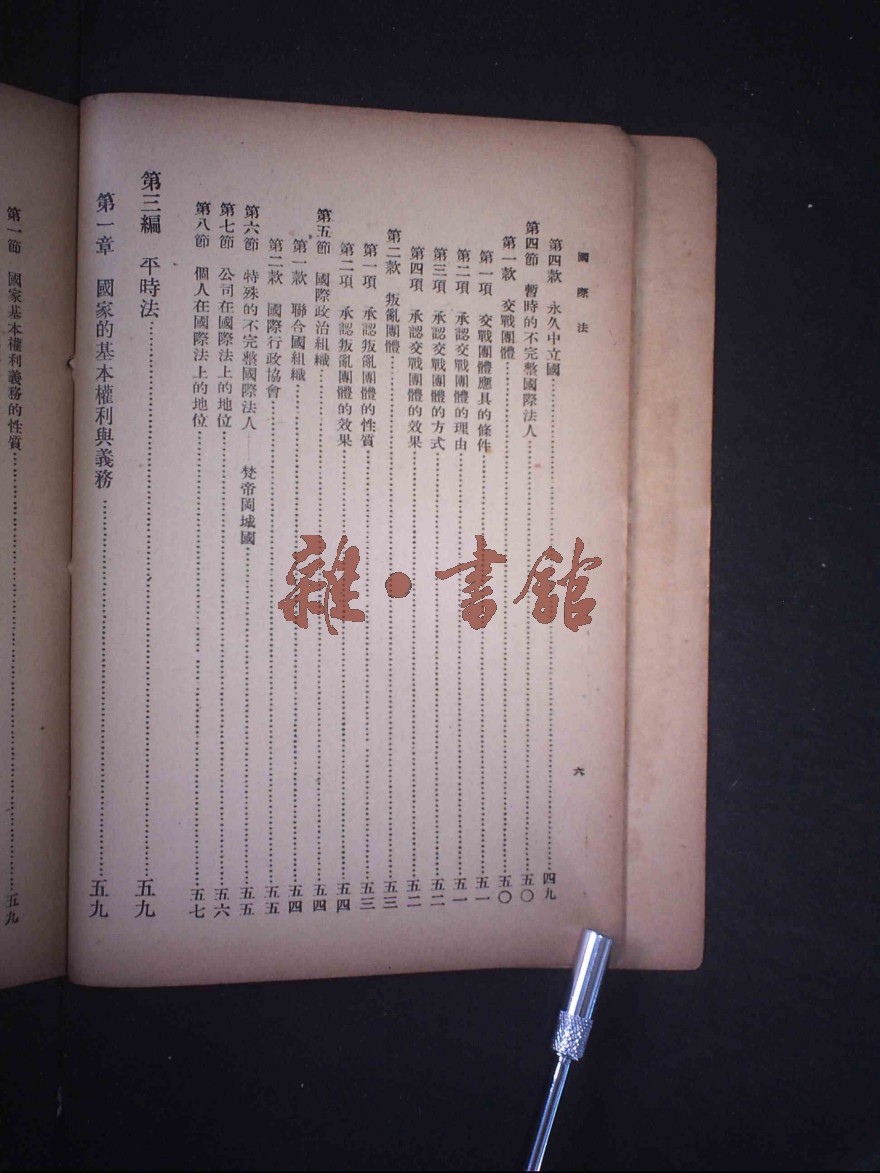 國際法
六
第四款 永久中立國……四九
第四節 暫時的不完整國際法人……五〇
第一款 交戰團體……五〇
第一項 交戰團體應具的條件……五一
第二項 承認交戰團體的理由……五一
第三項 承認交戰團體的方式……五二
第四項 承認交戰團體的效果……五二
第二款 叛亂團體……五三
第一項 承認叛亂團體的性質……五三
第二項 承認叛亂團體的效果……五四
第五節 國際政治組織……五四
第一款 聯合國組織……五四
第二款 國際行政協會……五五
第六節 特殊的不完整國際法人——梵帝岡城國……五五
第七節 公司在國際法上的地位……五六
第八節 個人在國際法上的地位……五七
第三編 平時法……五九
第一章 國家的基本權利與義務……五九
第一節 國家基本權利義務的性質……五九
雜·書館